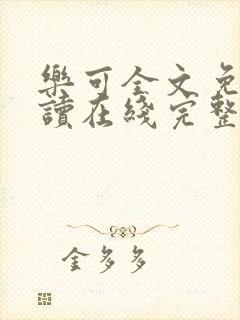 樂可全文免
讀在綫完整
金多多